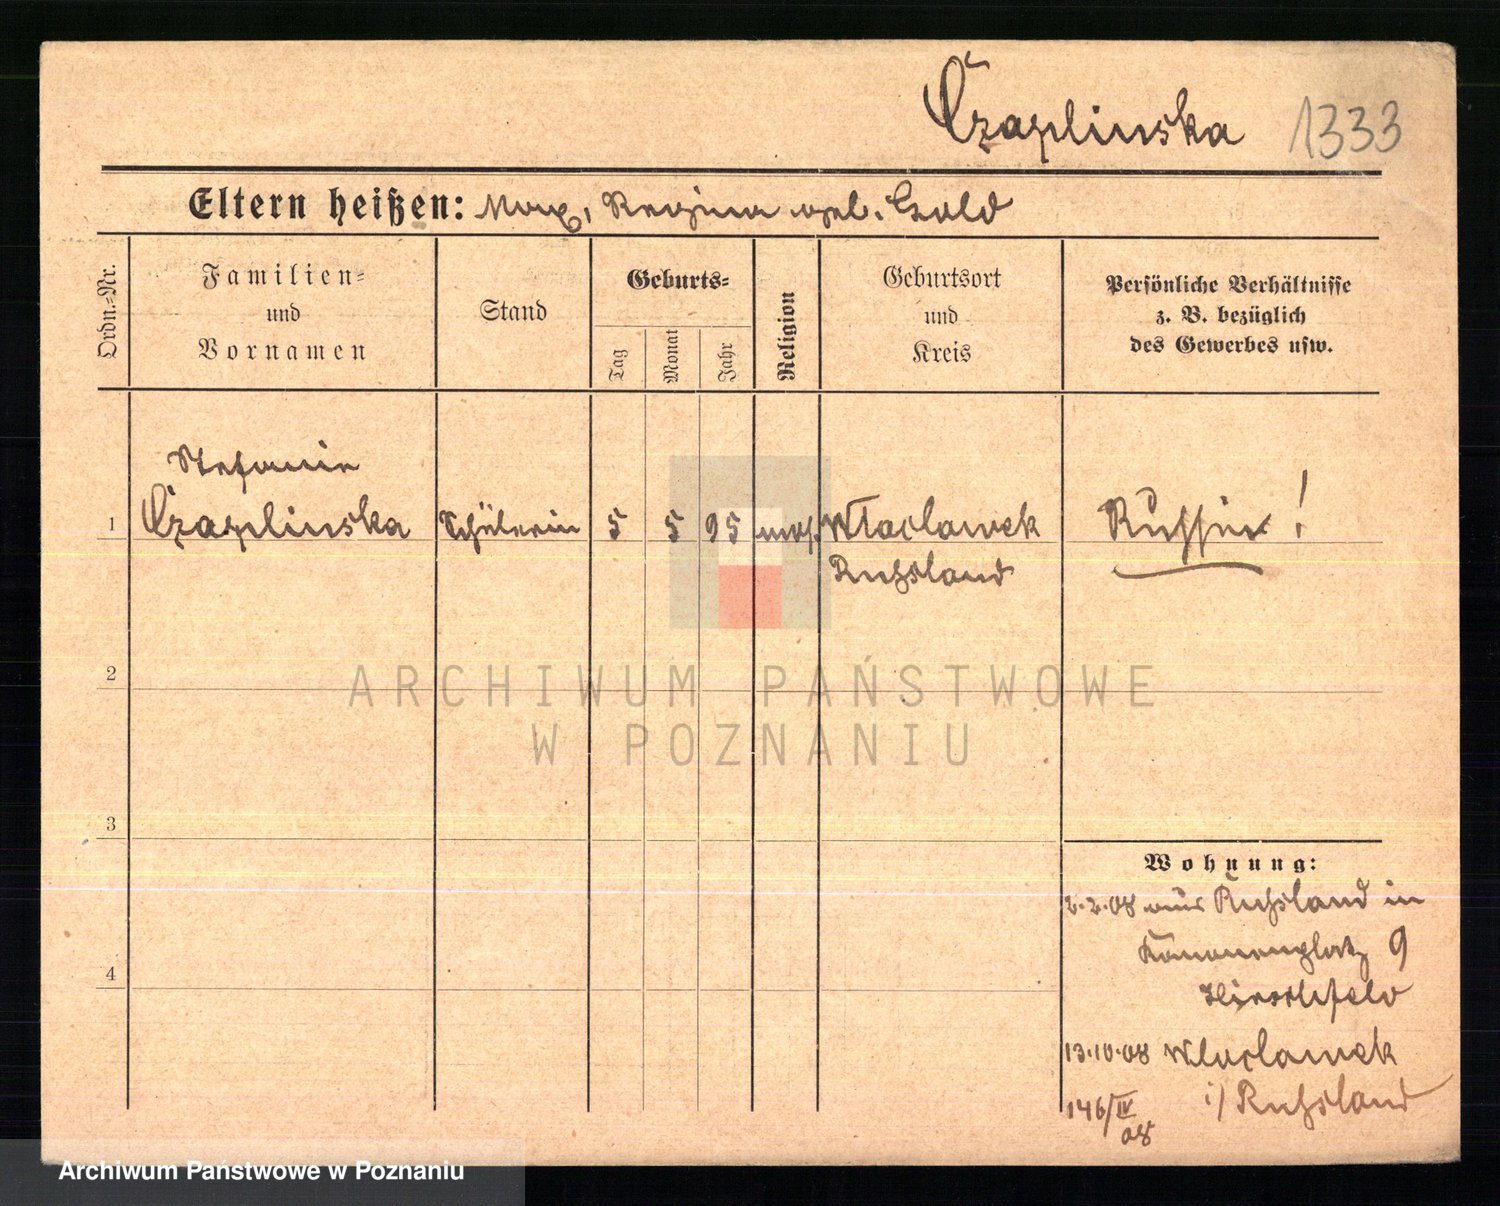 Czaplinska 1333
Eltern heißen: Max, Regina geb. Gold
Ordn.-Nr.
Familien-
und
Vornamen
Stand
Geburts-
Tag
Monat
Jahr
Religion
Geburtsort
und
Kreis
Persönliche Verhältnisse
z. B. bezüglich
des Gewerbes usw.
Stefanie
1 Czaplinska Schülerin 5 5 95 mos. Wloclawek Russin!
Russland
2
ARCHIWUM PAŃSTWOWE
W POZNANIU
3
Wohnung:
2.2.08 aus Russland in
Kanonenplatz 9
4
Hirschfeld
13.10.08 Wloclawek
i/ Russland
146/IV
08
Archiwum Państwowe w Poznaniu